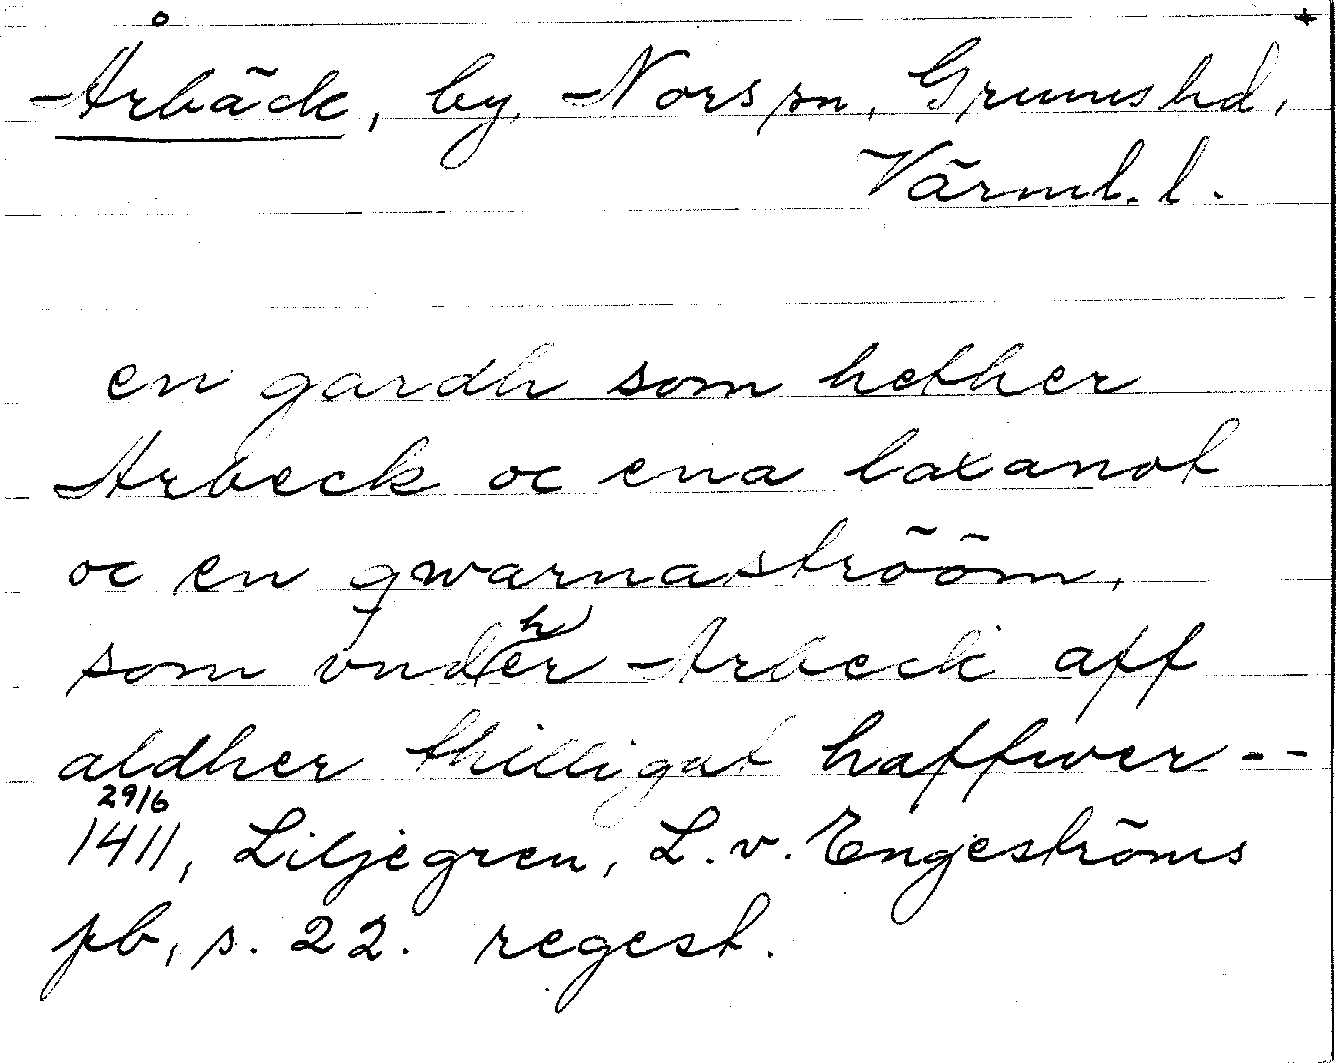 +
Årbäck, by, Nors sn, Grums hd,
Värml. l.
en gardh som hether
Arbeck oc ena laxanot
oc en qwarnaströöm,
som vndher Arbeck aff
aldher thilligat haffwer --
29/6
1411, Liljegren, L. v. Engeströms
pb, s. 22. regest.